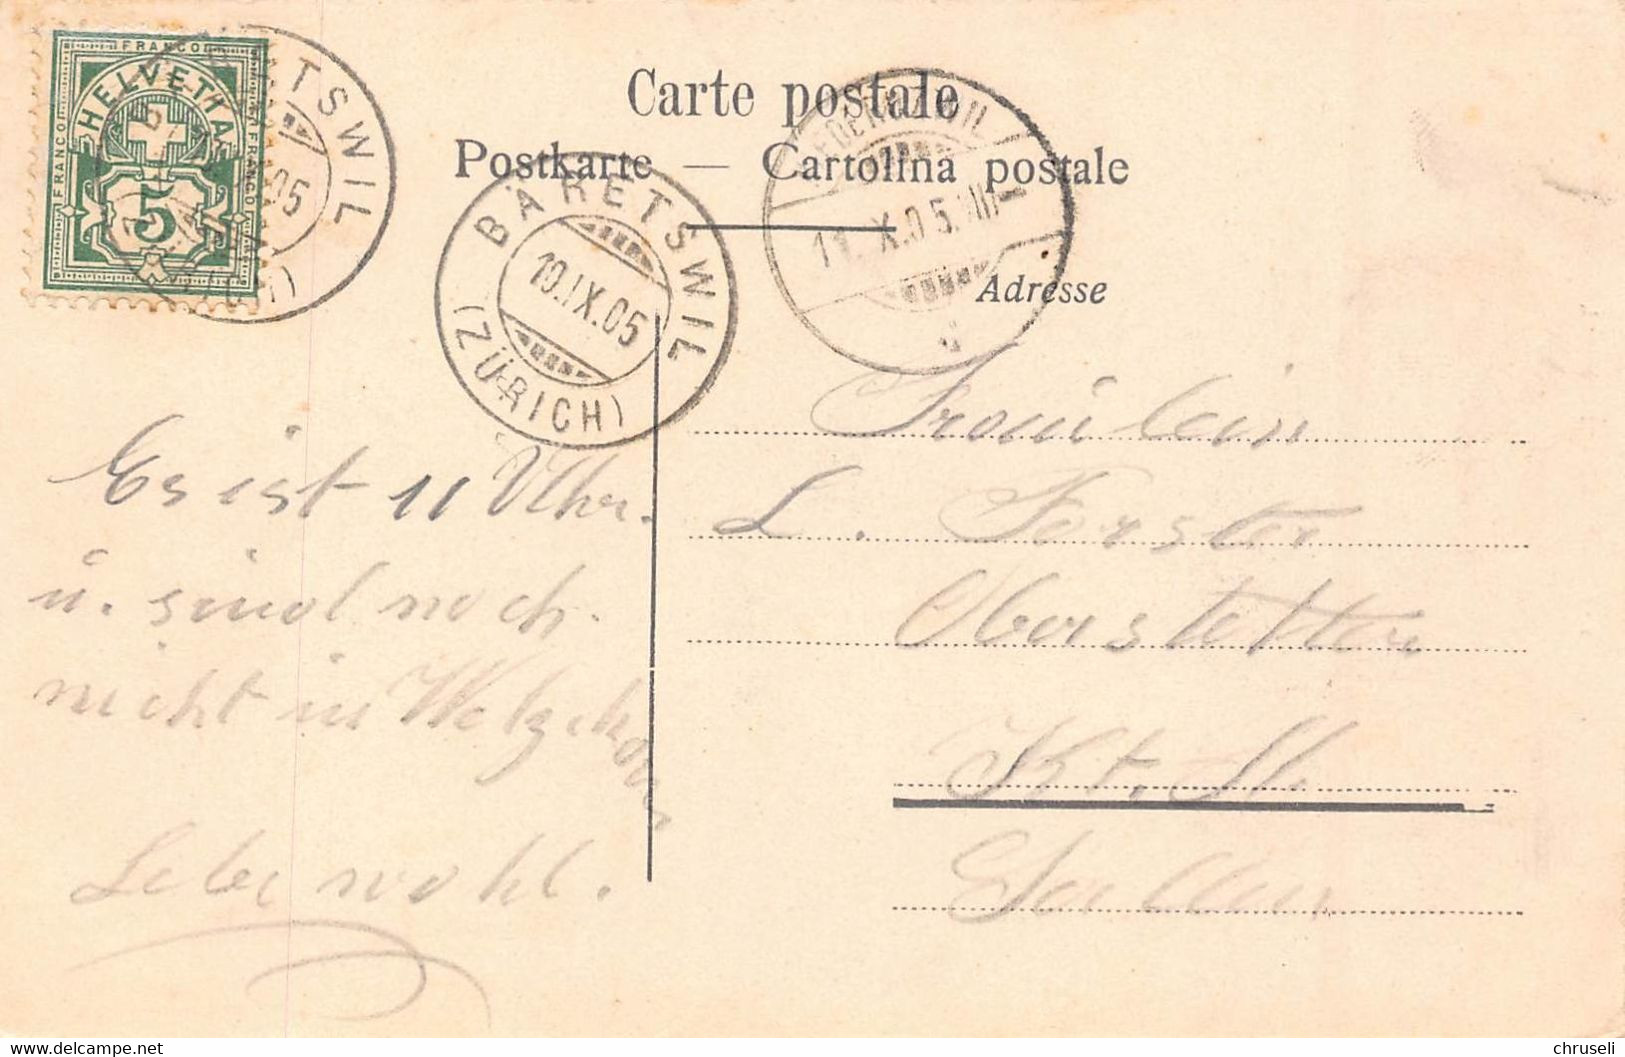 FRANCO
HELVETIA
FRANCO
FRANCO
5
BÄRETSWIL
05
(ZÜRICH)
Carte postale
Postkarte — Cartolina postale
BÄRETSWIL
10.IX.05
(ZÜRICH)
11. IX.05. VIII
Adresse
Es ist 11 Uhr.
u. sind noch
nicht in Wetzikon.
Lebe wohl.
Fräulein
L. Forster
Oberstetten
Kt. St.
Gallen
chruseli